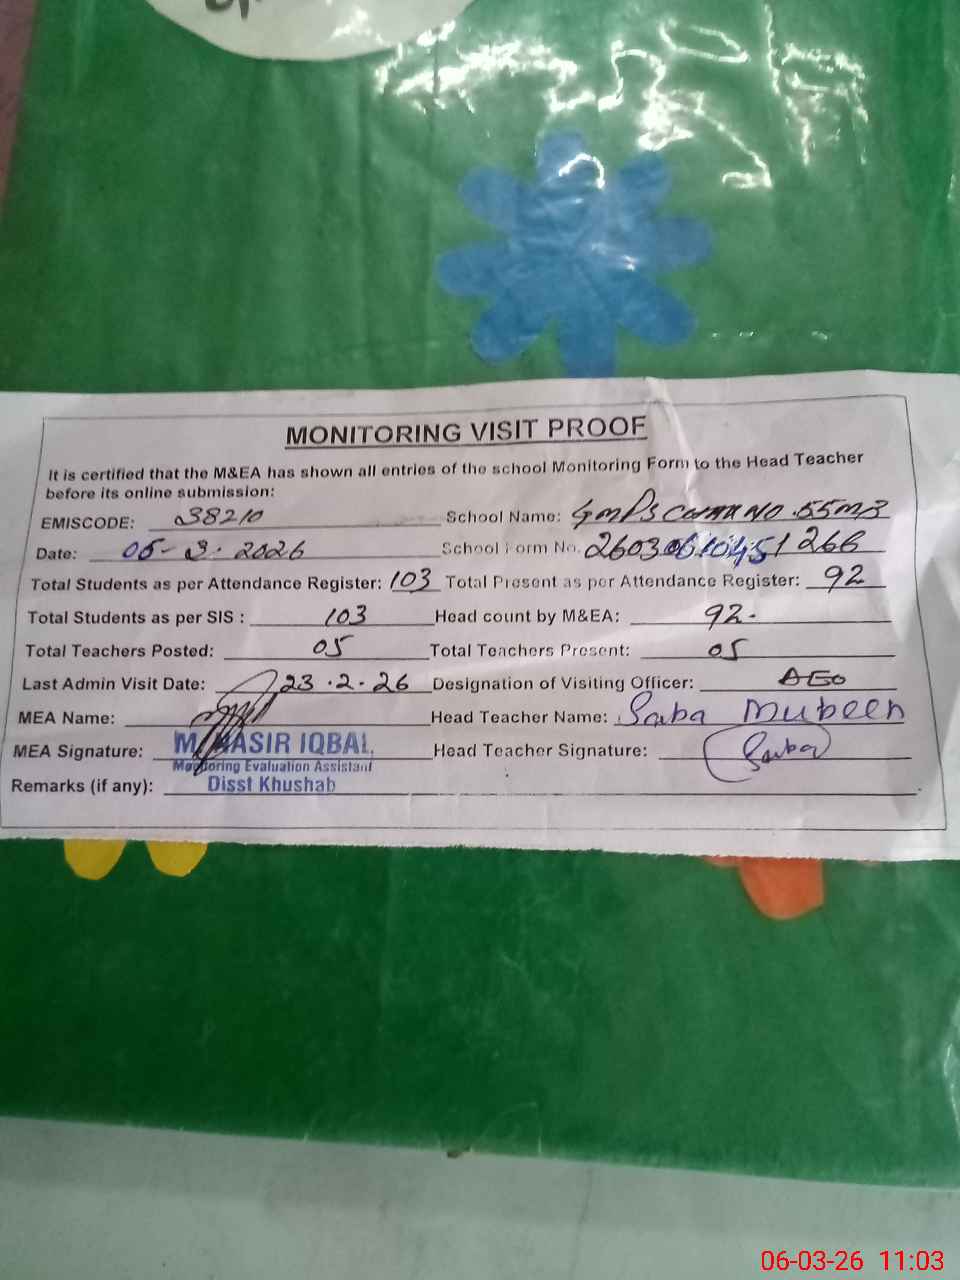 MONITORING VISIT PROOF
It is certified that the M&EA has shown all entries of the school Monitoring Form to the Head Teacher
before its online submission:
EMISCODE: 38210 School Name: GMPS Chak NO.55MB
Date: 06-3.2026 School Form No. 26030610451266
Total Students as per Attendance Register: 103 Total Present as per Attendance Register: 92
Total Students as per SIS : 103 Head count by M&EA: 92-
Total Teachers Posted: 05 Total Teachers Present: 05
Last Admin Visit Date: 23.2.26 Designation of Visiting Officer: AEO
MEA Name: Head Teacher Name: Saba Mubeen
MEA Signature: Head Teacher Signature: Saba
IQBAL
Monitoring Evaluation Assistant
Remarks (if any): Disst Khushab
06-03-26 11:03